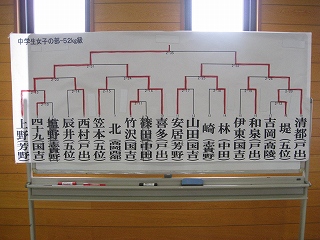 中学生女子の部-52kg級
清都戸出
堤 五位
吉岡高陵
和泉戸出
伊東国吉
林 中田
崎 志貴野
山田国吉
安居芳野
喜多戸出
篠田中田
竹沢国吉
北
笠本五位
西村戸出
辰井五位
志貴野
四十九国吉
上野芳野